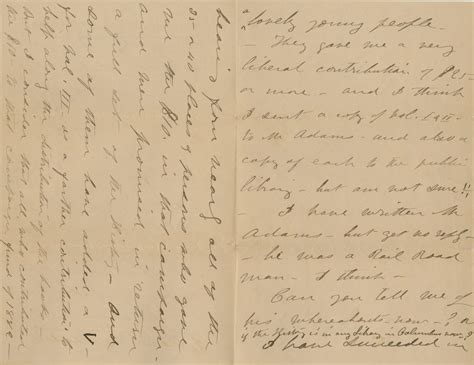 lovely young people —
— They gave me a very
liberal contribution of $25
or more — and I think
I sent a copy of Vol. I & II —
to Mr Adams — and also a
copy of each to the public
library — but am not sure!!
— I have written Mr
Adams — but got no reply —
— he was a Rail Road
man — I think —
Can you tell me of
his whereabouts now —? or
if the History is in any Library in Columbus now?
I have succeeded in
hearing from nearly all of the
35 or 40 places & persons who gave
me the $10 in that campaign —
and were promised in return
a full set of the History — and
some of them have added a V —
for Vol. III — as a further contribution to
help along the distribution of the books —
But I consider that all who contributed
the $10 to that campaign fund of 1880 —